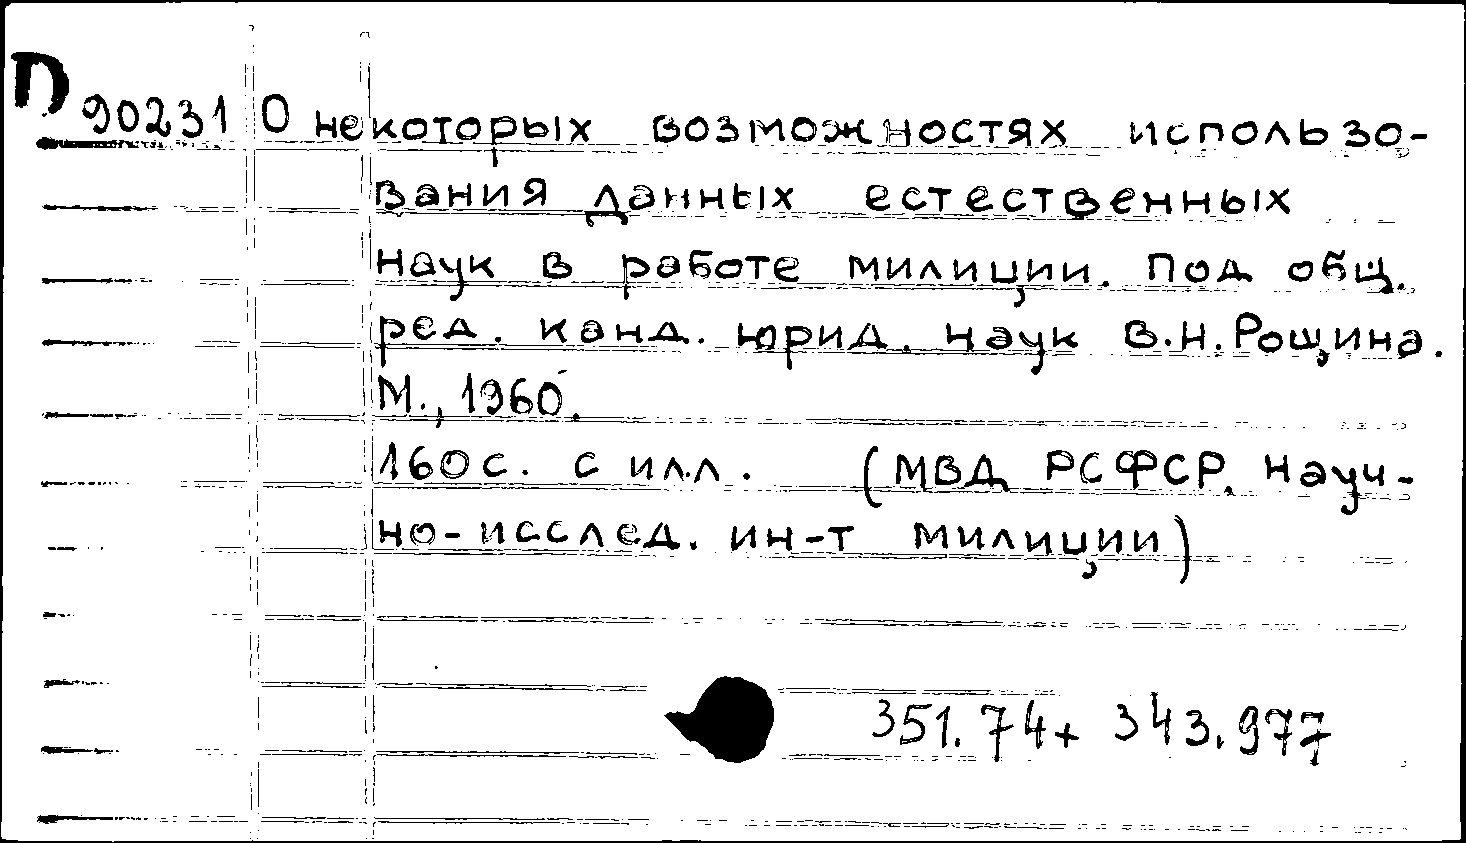 П 90231 О некоторых возможностях использо-
вания данных естественных
наук в работе милиции. Под общ.
ред. канд. юрид. наук В.Н.Рощина.
М., 1960.
160с. с илл. (МВД РСФСР. Науч-
но-исслед. ин-т милиции)
351.74+ 343.977